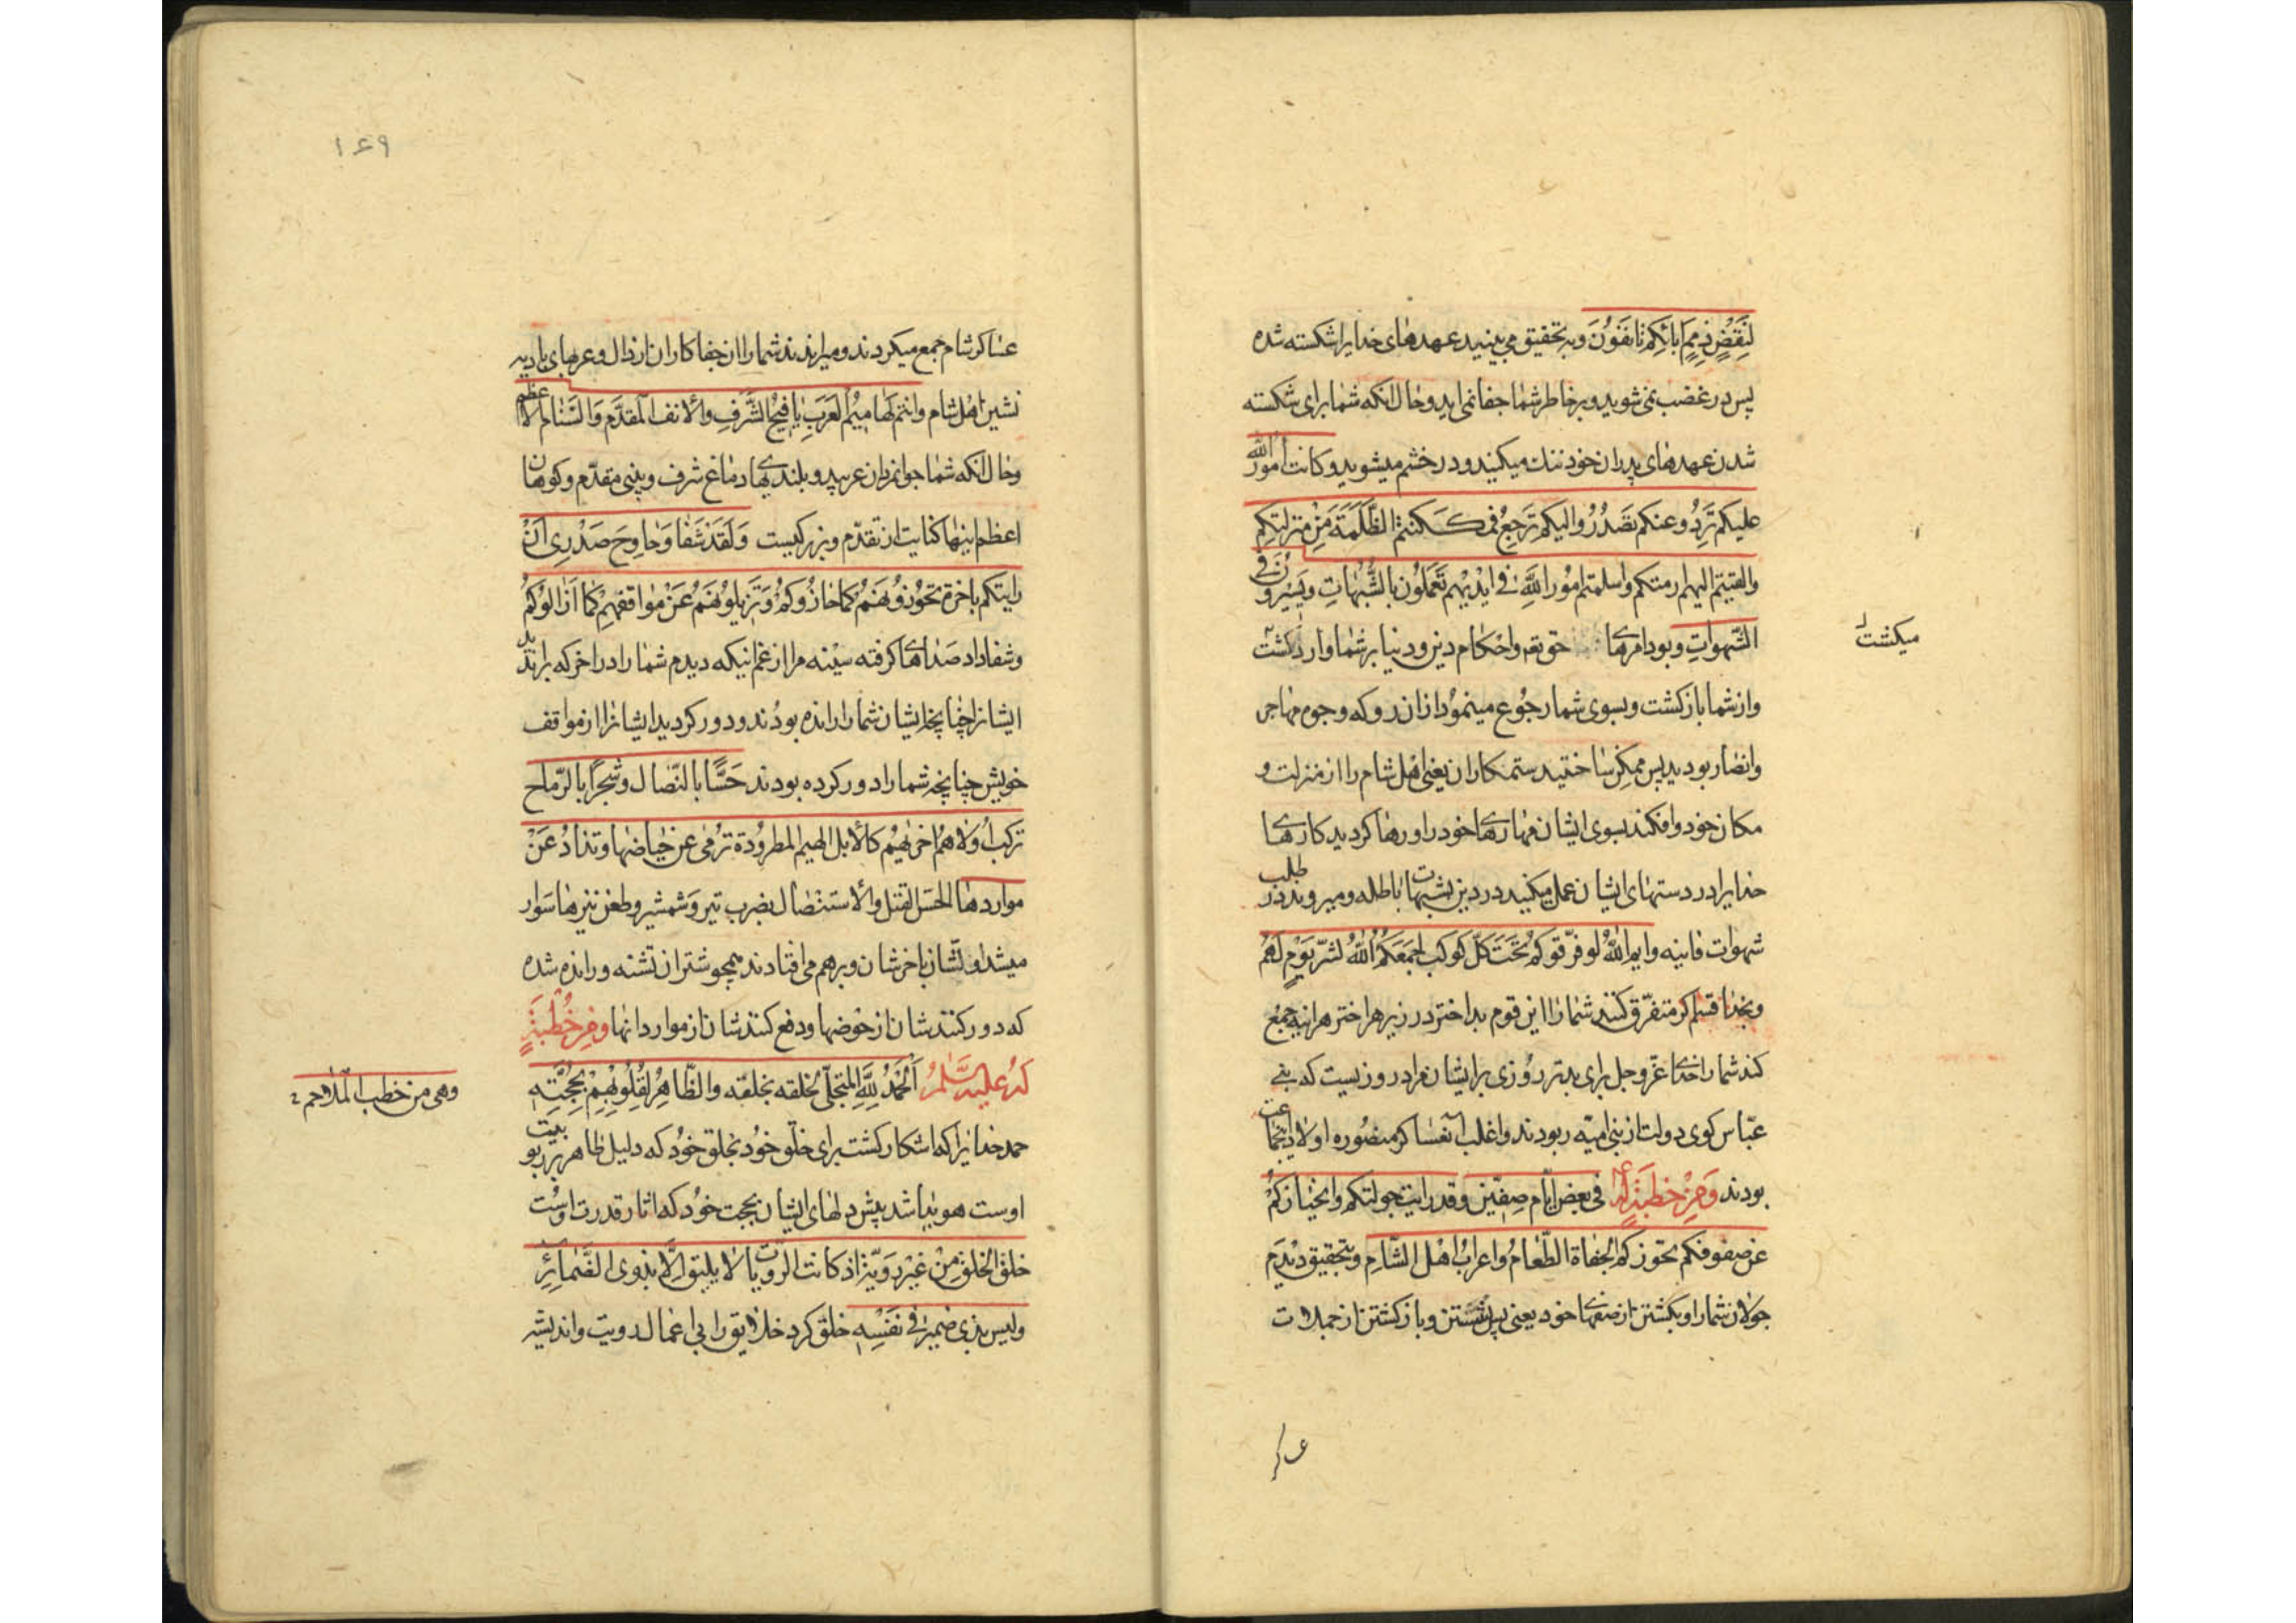 لنقض ذمم ابائكم تانفون و به تحقیق می بینید عهدهای خدایرا شکسته شده
پس در غضب نمی شوید و برخاطر شما جفا نمی اید و حال انکه شما برای شکسته
شدن عهدهای پدران خود ننك میکنید و در خشم میشوید و کانت امور الله
علیکم ترد و عنکم تصدر و الیکم ترجع فمکنتم الظلمة من منزلتکم
والقیتم الیهم ازمتکم و اسلمتم امور الله فی ایدیهم تعملون بالشبهات و یسیرون فی
الشهوات و بود امرهای حق تعه و احکام دین و دنیا بر شما وارد کشت
میکشت
و از شما باز کشت و بسوی شما رجوع مینمود از ان رو که وجوه مهاجر
و انصار بودید پس ممکن ساختید ستمکاران یعنی اهل شام را از منزلت و
مکان خود و افکندید بسوی ایشان مهارهای خود را و رها کردید کارهای
خدایرا در دستهای ایشان عمل میکنید در دین بشبهات باطله و میروند در طلب
شهوات فانیه و ایم الله لو فرقوکم تحت کل کوکب لجمعکم الله لشر یوم لهم
و بخدا قسم اکر متفرق کنند شما را این قوم بد اختر در زیر هر اختر هر اینه جمع
کند شما را خدای عز و جل برای بدتر روزی برایشان مراد روزیست که بنی
عباس کوی دولت از بنی امیه ربودند و اغلب ان عساکر منصوره اولاد ان جماعت
بودند و من خطبة له فی بعض ایام صفین و قد رایت جولتکم و انحیازکم
عن صفوفکم تحوزکم الجفاة الطغام و اعراب اهل الشام و بتحقیق دیدم
جولان شما را و بکشتن از صفهای خود یعنی پس نشستن و باز کشتن از حملات
عساکر
١٤٩
عساکر شام جمع میکردند و میراندند شما را ان جفا کاران ارذال و عربهای بادیه
نشین اهل شام و انتم لهامیم العرب یافیخ الشرف و الانف المقدم و السنام الاعظم
و حال انکه شما جوانمردان عربید و بلندیهای دماغ شرف و بینی مقدم و کوهان
اعظم اینها کنایت از تقدم و بزرکیست و لقد شفا وحاوح صدری ان
رایتکم باخرة تحوزونهم کما حازوکم و تزیلونهم عن مواقفهم کما ازالوکم
و شفا داد صداهای کرفته سینه مرا از غم اینکه دیدم شما را در اخر که براندید
ایشانرا چنانچه ایشان شما را رانده بودند و دور کردید ایشانرا از مواقف
خویش چنانچه شما را دور کرده بودند حسا بالنصال و شجرا بالرماح
ترکب اولاهم اخریهم کالابل الهیم المطرودة ترمی عن حیاضها و تذاد عن
مواردها الحس القتل و الاستیصال بضرب تیر و شمشیر و طعن نیزها سوار
میشد اولشان باخرشان و برهم می افتادند همچو شتران تشنه و رانده شده
که دور کنندشان از حوضها و دفع کنندشان از موارد انها و من خطبة
له علیه السلام الحمد لله المتجلی لخلقه بخلقه و الظاهر لقلوبهم بحجته
وهی من خطب الملاحم
حمد خدایرا که اشکار کشت برای خلق خود بخلق خود که دلیل ظاهر بر ربوبیت
اوست هویدا شد پیش دلهای ایشان بحجت خود که اثار قدرت اوست
خلق الخلق من غیر رویة اذ کانت الرویات لا یلیق الا بذوی الضمائر
و لیس بذی ضمیر فی نفسه خلق کرد خلایق را بی اعمال رویت و اندیشه